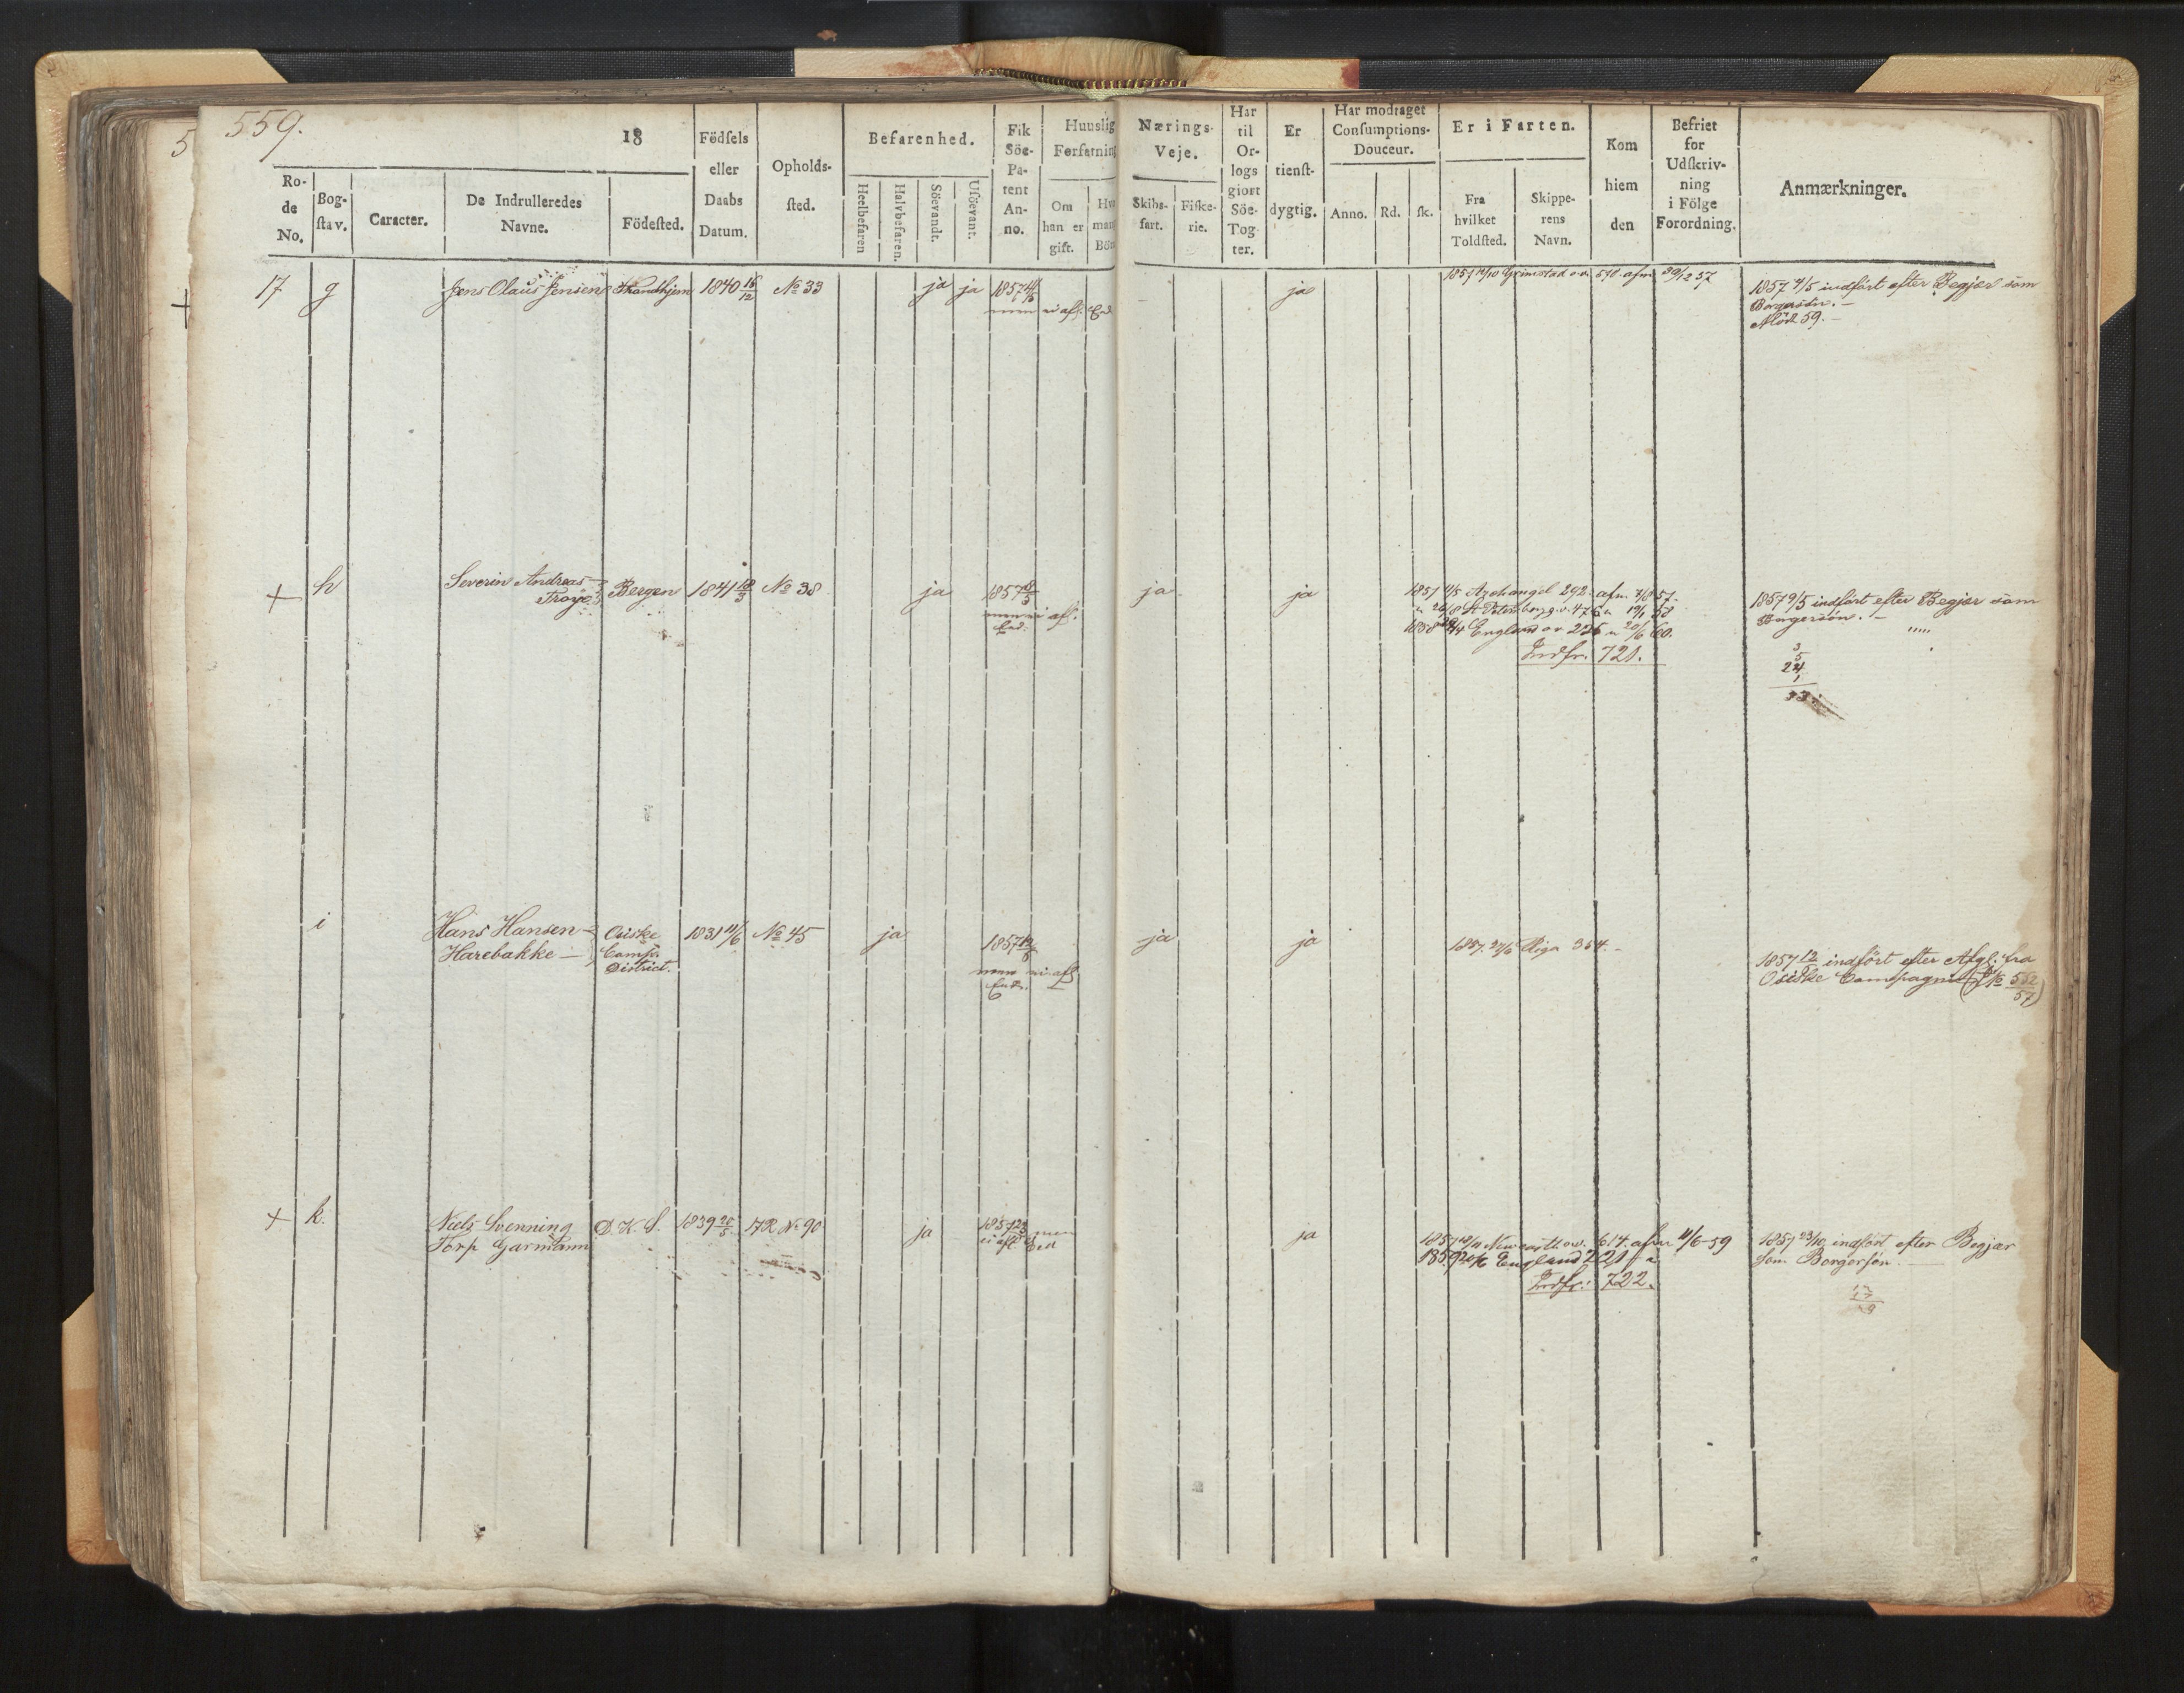 559.
18
Ro-
de
No.
Bog-
stav.
Caracter.
De Indrulleredes
Navne.
Födested.
Födsels
eller
Daabs
Datum.
Opholds-
sted.
Befarenhed.
Heelbefaren
Halvbefaren.
Söevandt.
Usöevant.
Fik
Söe-
Pa-
tent
An-
no.
Huuslig
Forfatning
Om
han er
gift.
Nærings-
Veje.
Skibs-
fart.
Fiske-
rie.
Har
til
Or-
logs
giort
Söe-
Tog-
ter.
Er
tienst-
dygtig.
Har modtaget
Consumptions-
Douceur.
Anno.
Rd.
sk.
Er i Farten.
Fra
hvilket
Toldsted.
Skippe-
rens
Navn.
Kom
hiem
den
Befriet
for
Udskriv-
ning
i Fölge
Forordning.
Anmærkninger.
17 g Jens Olaus Jensen Throndhjem 1840 16/12 No 33 ja ja 1857 4/5 ja 1857 14/10 Grimstad 30/12 57 1857 4/5 indført efter Begjær som
Borgersön. -
Mödt 59. -
h Severin Andreas
Troye Bergen 1841 18/3 No 38 ja 1857 9/5 ja ja 1857 11/5 Archangel 292 afm. 7/8 57.
St Petersborg 476
1858 England 225 20/6 60.
Indfr. 721.
1857 9/5 indført efter Begjær som
Borgersön. -
i Hans Hansen
Harebakke - Osiske
Comp.
District. 1831 11/6 No 45 ja 1857 12/5 ja ja 1857 Riga 354. -
1857 12/5 indført efter Afgl. fra
Osiske Compagnie 552/57
k. Niels Svenning
Torp Garmann D. K. S. 1839 20/5 17 R No 90 ja 1857 ja 1857 Newcastle 614. afm 11/6-59
1859 England 221
Indfr: 722.
1857 23/10 indført efter Begjær
som Borgersön. -